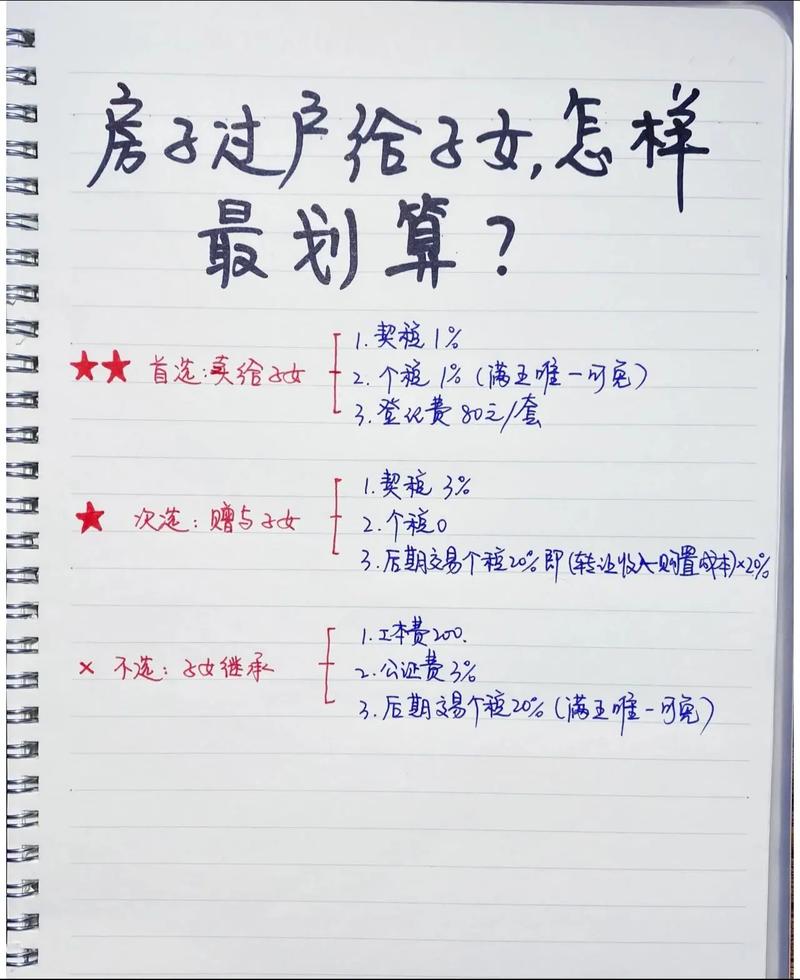 房子过户给子女,怎样
最划算?
★★ 首选:卖给子女
1.契税 1%
2.个税 1% (满五唯一可免)
3.登记费 80元/套
★ 次选:赠与子女
1.契税 3%
2.个税0
3.后期交易个税20%即(转让收入-购置成本)×20%
× 不选:子女继承
1.工本费200.
2.公证费3%
3.后期交易个税20%(满五唯一可免)